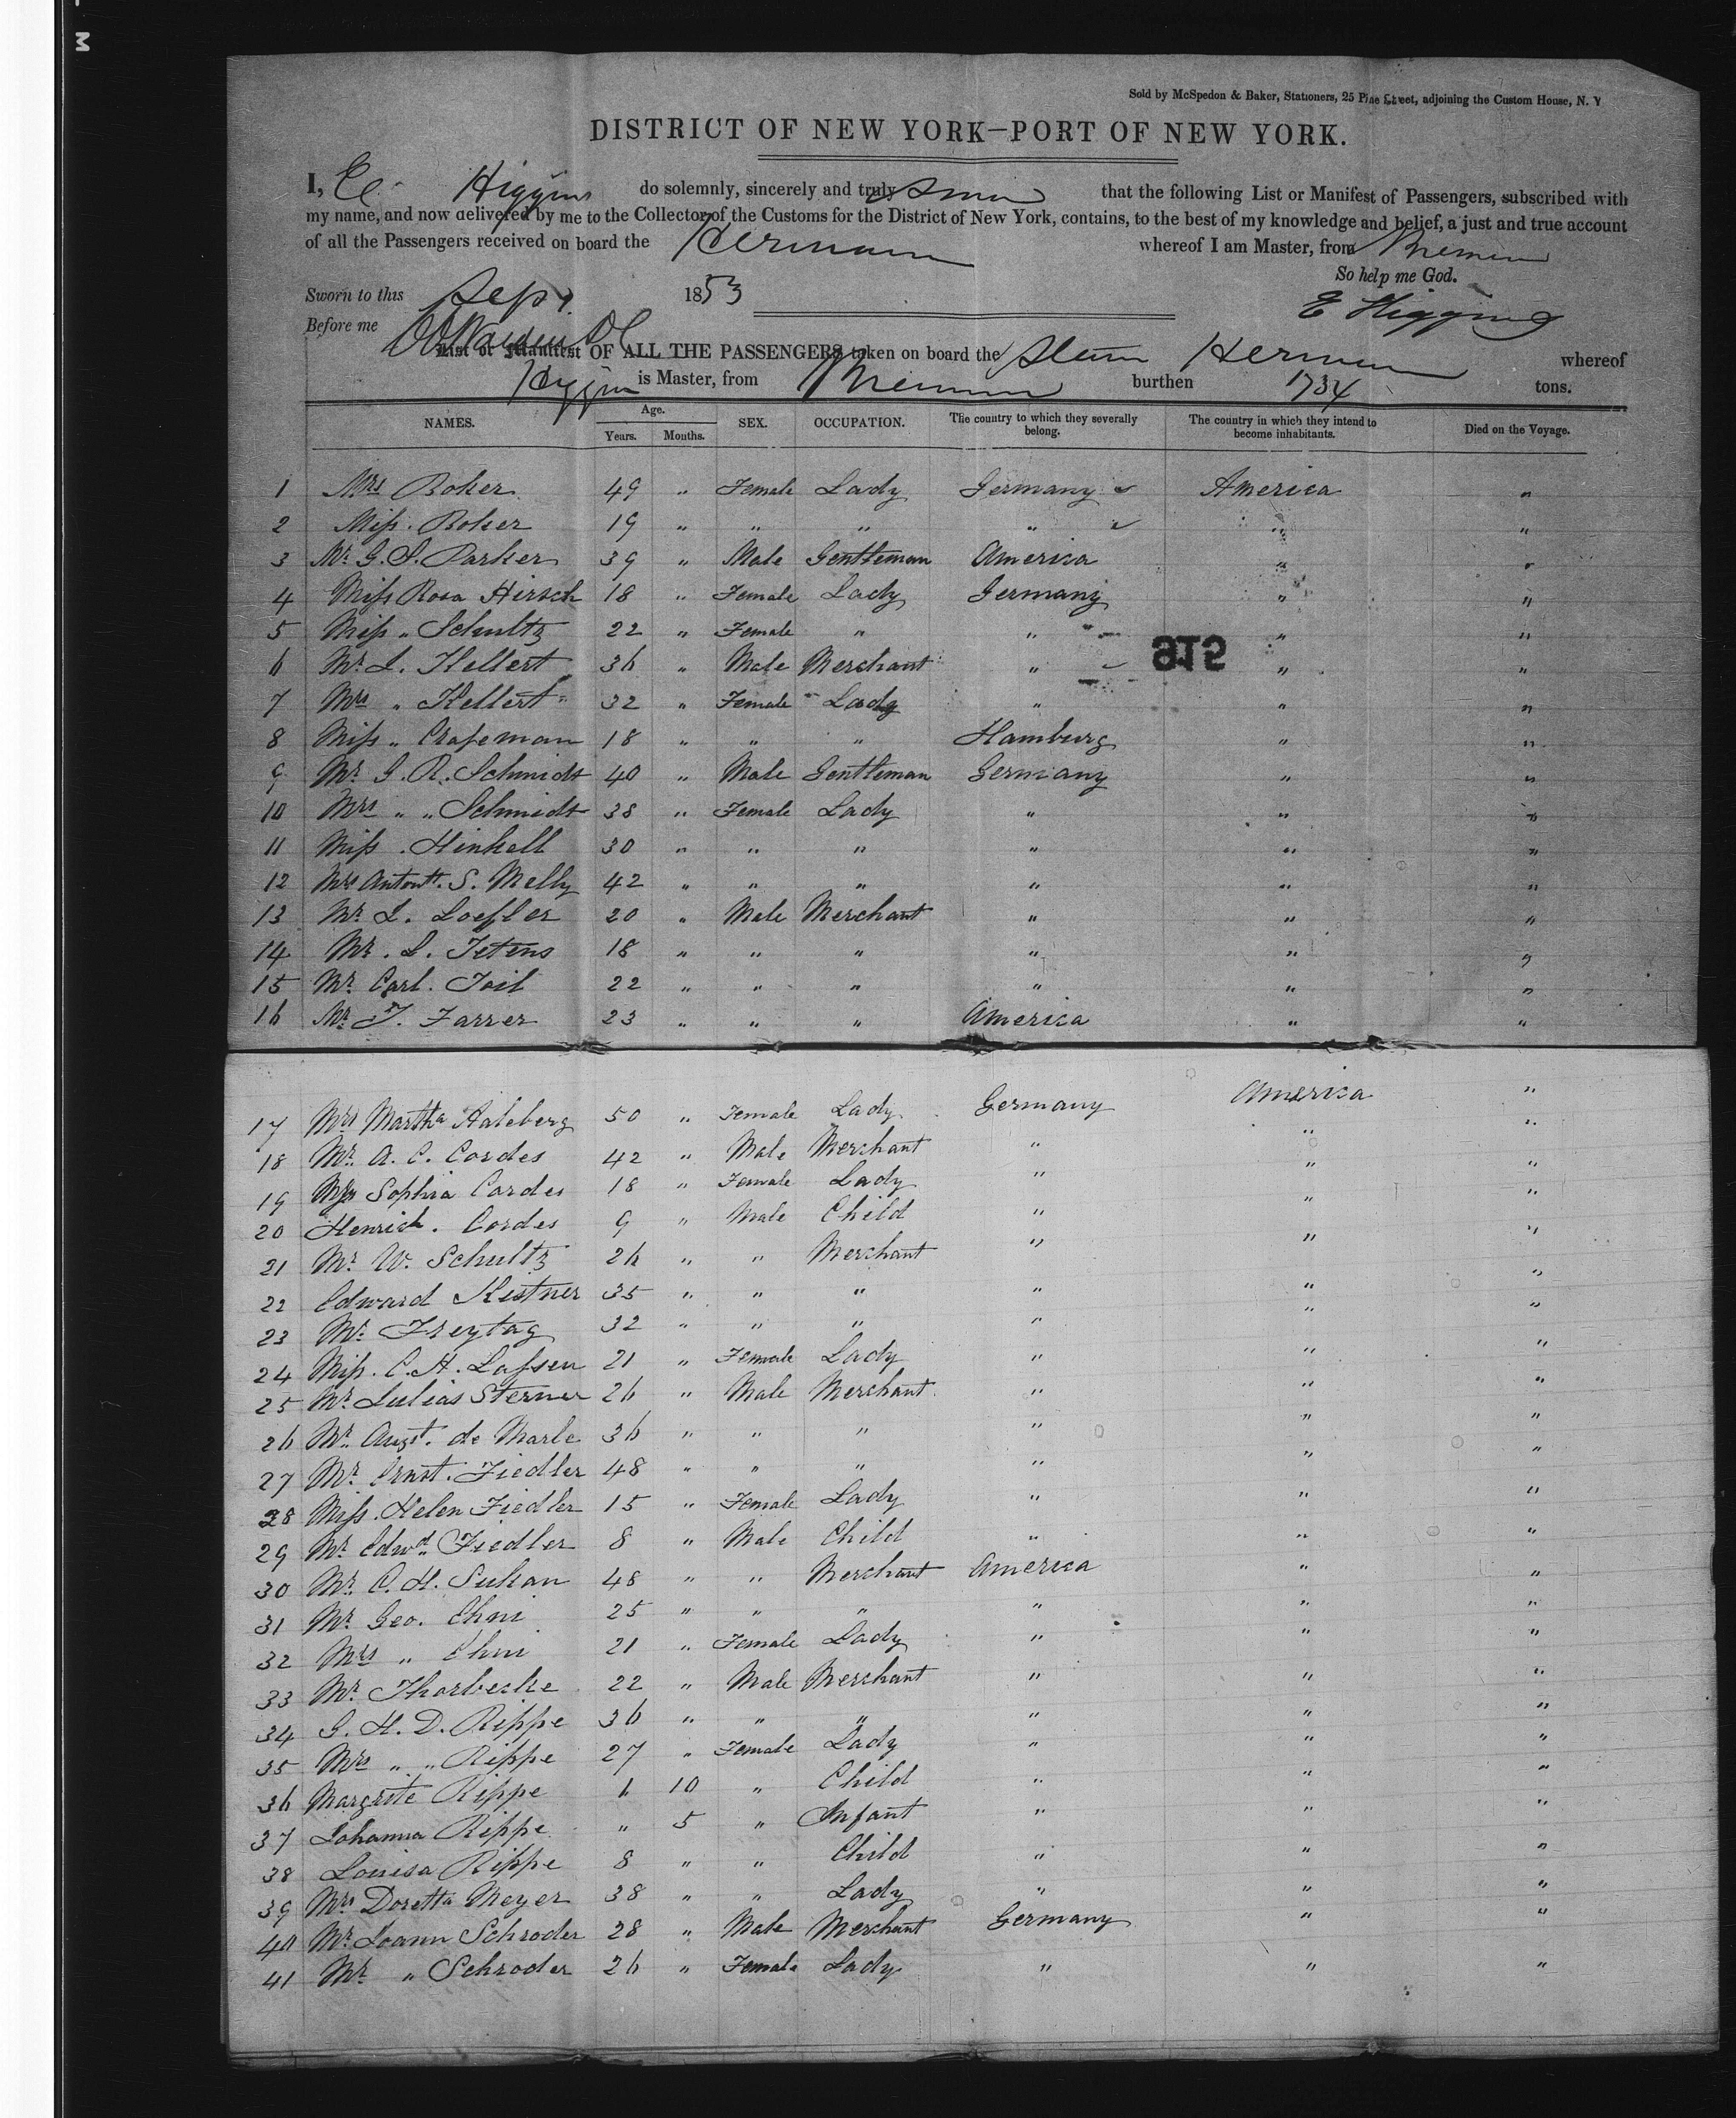 Sold by McSpedon & Baker, Stationers, 25 Pine Street, adjoining the Custom House, N. Y
DISTRICT OF NEW YORK—PORT OF NEW YORK.
I, E Higgins do solemnly, sincerely and truly that the following List or Manifest of Passengers, subscribed with
my name, and now delivered by me to the Collector of the Customs for the District of New York, contains, to the best of my knowledge and belief, a just and true account
of all the Passengers received on board the Hermann whereof I am Master, from Bremen
So help me God.
Sworn to this Sep 7 1853
E Higgins
Before me
List or Manifest OF ALL THE PASSENGERS taken on board the Steam Hermann whereof
Higgins is Master, from Bremen burthen 1734 tons.
NAMES. Age. Years. Months. SEX. OCCUPATION. The country to which they severally belong. The country in which they intend to become inhabitants. Died on the Voyage.
1 Mrs Boker 49 " Female Lady Germany America "
2 Miss. Boker 19 " " " " " "
3 Mr. G. S. Parker 39 " Male Gentleman America " "
4 Miss Rosa Hirsch 18 " Female Lady Germany " "
5 Miss " Schultz 22 " Female " " " "
6 Mr. L. Kellert 36 " Male Merchant " " "
7 Mrs " Kellert 32 " Female Lady " " "
8 Miss " Chapeman 18 " " " Hamburg " "
9 Mr G. R. Schmidt 40 " Male Gentleman Germany " "
10 Mrs " " Schmidt 38 " Female Lady " " "
11 Miss . Hinkell 30 " " " " " "
12 Mrs Antontt. S. Melly 42 " " " " " "
13 Mr. L. Loefler 20 " Male Merchant " " "
14 Mr. L. Tetens 18 " " " " " "
15 Mr. Carl. Toil 22 " " " " " "
16 Mr. T. Farrer 23 " " " America " "
17 Mrs Martha Haleberg 50 " Female Lady Germany America "
18 Mr. A. C. Cordes 42 " Male Merchant " " "
19 Miss Sophia Cordes 18 " Female Lady " " "
20 Henrich. Cordes 9 " Male Child " " "
21 Mr. W. Schultz 26 " " Merchant " " "
22 Edward Kistner 35 " " " " " "
23 Mr. Freytag 32 " " " " " "
24 Miss. C. H. Lassen 21 " Female Lady " " "
25 Mr. Julias Sterner 26 " Male Merchant " " "
26 Mr. Augst. de Marle 36 " " " " " "
27 Mr. Ernst. Fiedler 48 " " " " " "
28 Miss. Helen Fiedler 15 " Female Lady " " "
29 Mr Edwd. Fiedler 8 " Male Child " " "
30 Mr. C. H. Suhan 48 " " Merchant America " "
31 Mr Geo. Ehni 25 " " " " " "
32 Mrs " Ehni 21 " Female Lady " " "
33 Mr. Thorbecke 22 " Male Merchant " " "
34 G. H. D. Rippe 36 " " " " " "
35 Mrs " " Rippe 27 " Female Lady " " "
36 Margrete Rippe 1 10 " Child " " "
37 Johanna Rippe " 5 " Infant " " "
38 Louisa Rippe 8 " " Child " " "
39 Mrs Doretta Meyer 38 " " Lady " " "
40 Mr. Joann Schroder 28 " Male Merchant Germany " "
41 Mr " Schroder 26 " Female Lady " " "